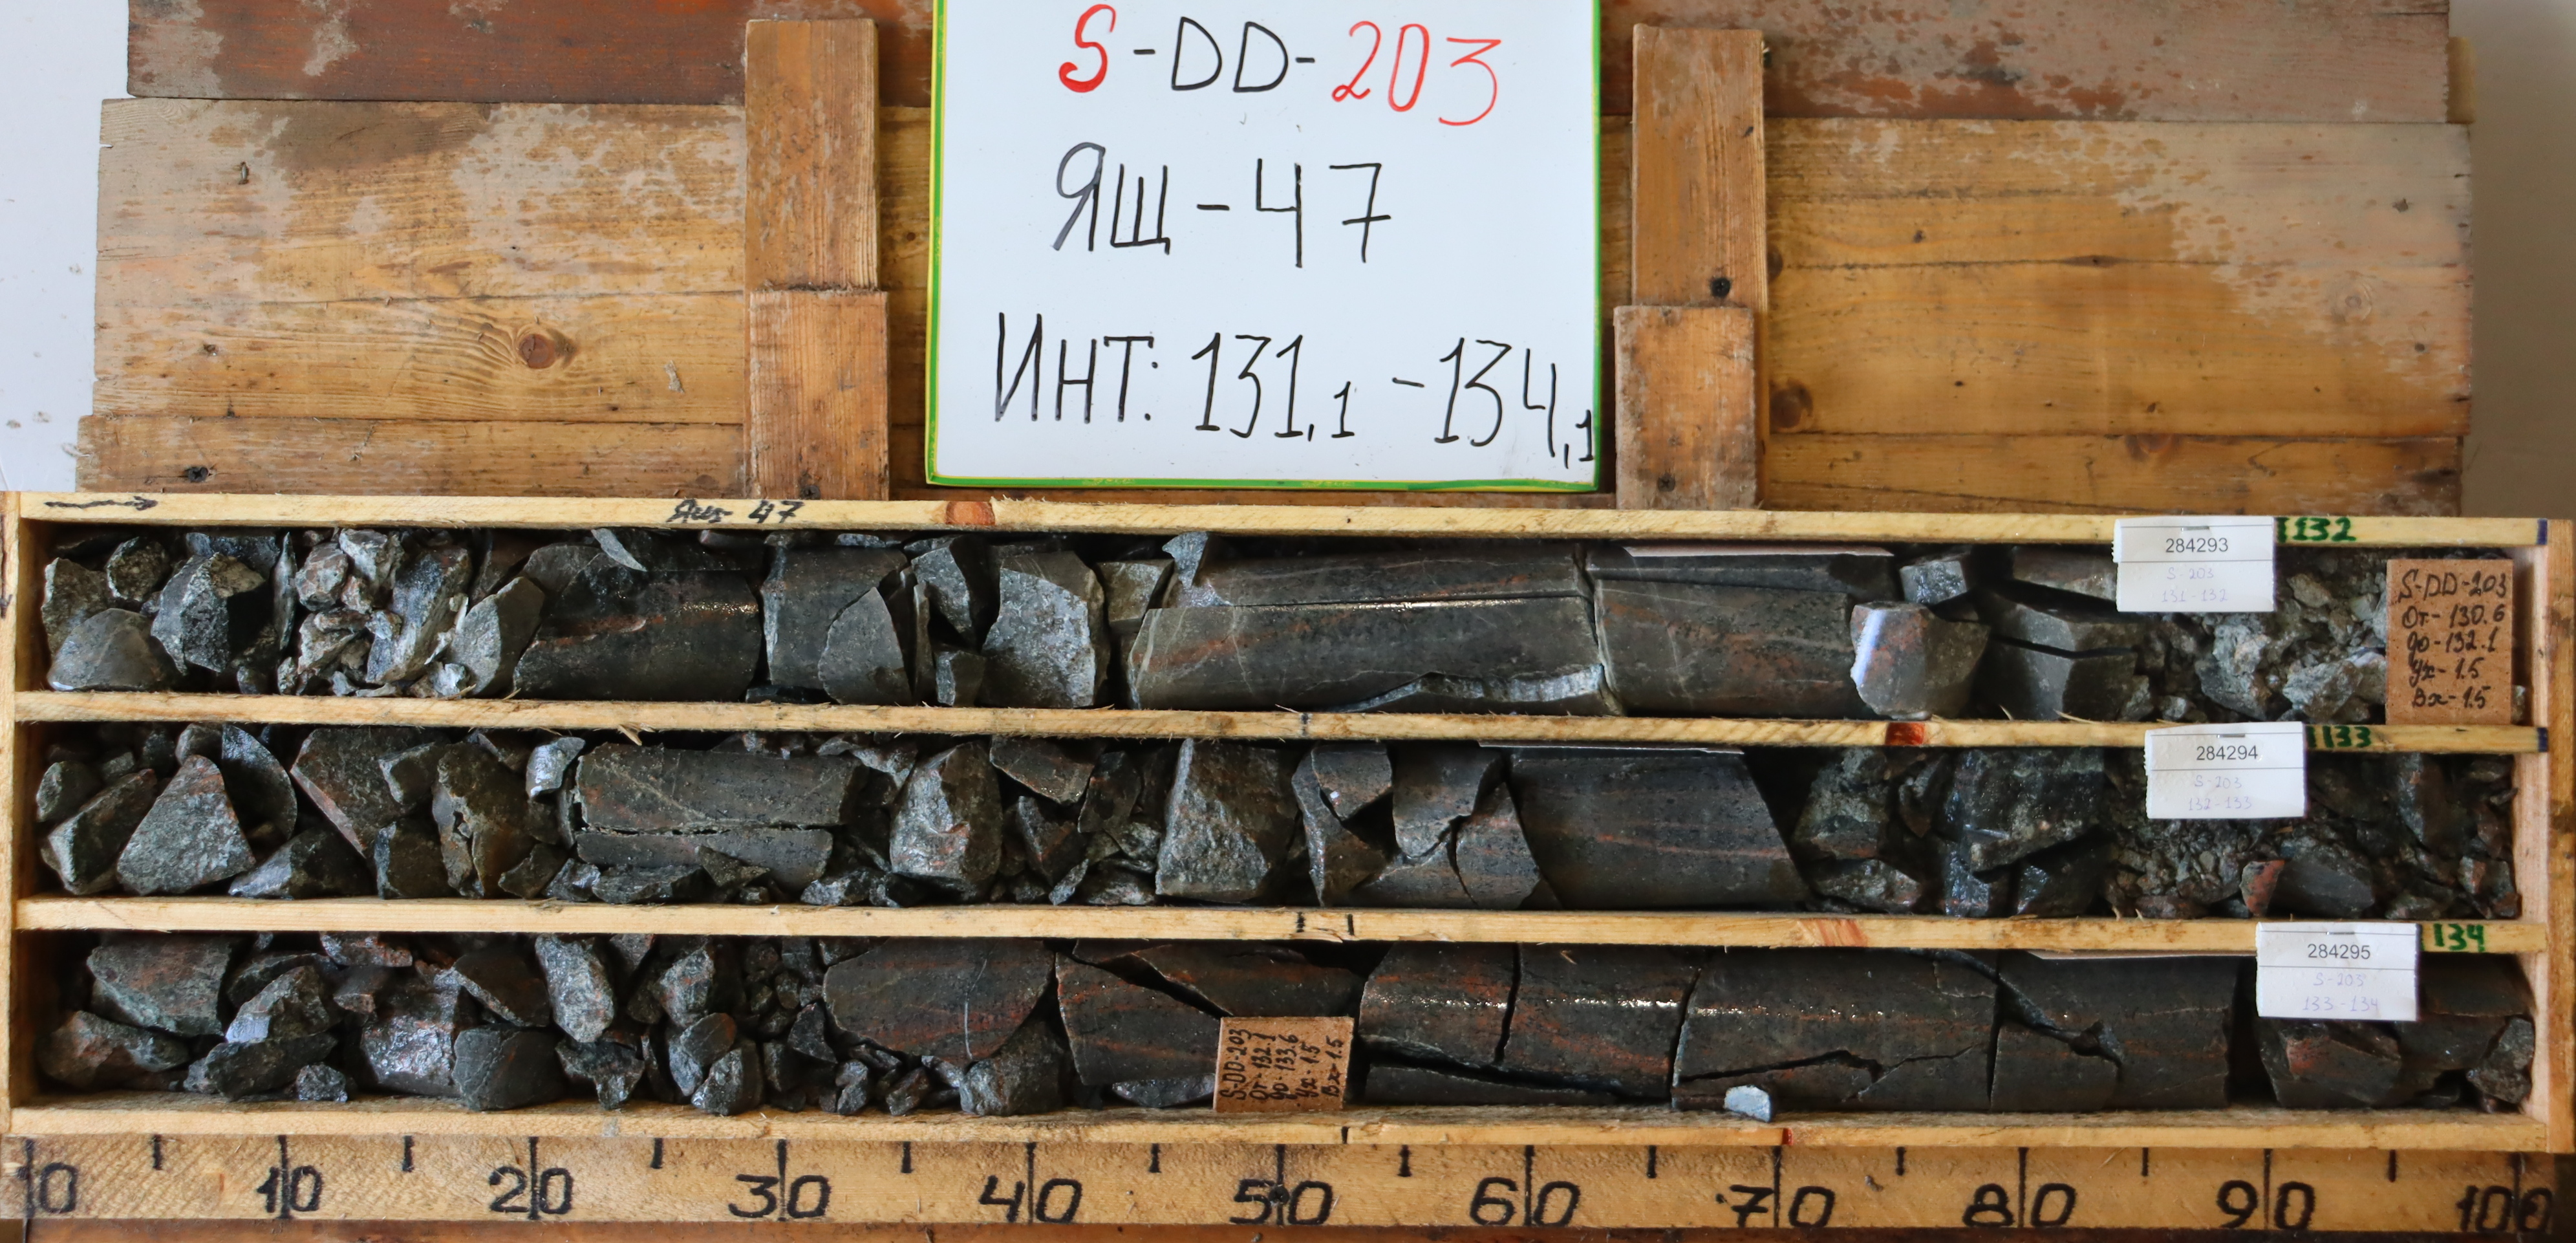 S-DD-203
ЯЩ-47
ИНТ: 131,1-134,1
Ящ 47
132
284293
S-203
131-132
S-DD-203
От-130.6
до-132.1
Ух-1.5
Вх-1.5
133
284294
S-203
132-133
134
284295
S-203
133-134
S-DD-203
От-132.1
до-133.6
Ух-1.5
Вх-1.5
0 10 20 30 40 50 60 70 80 90 100